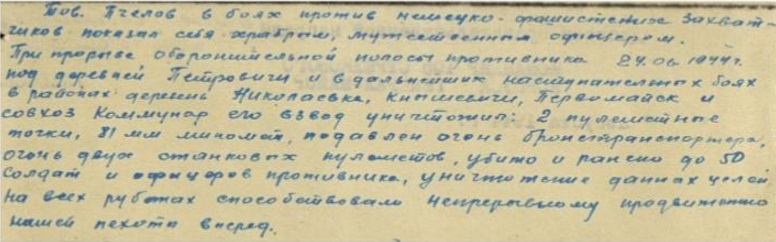 Тов. Пчелов в боях против немецко-фашистских захват-
чиков показал себя храбрым, мужественным офицером.
При прорыве оборонительной полосы противника 24.06.1944 г.
под деревней Петровичи и в дальнейших наступательных боях
в районах деревень Николаевка, Первомайск и
совхоз Коммунар его взвод уничтожил: 2 пулеметные
точки, 81 мм миномет, подавлен огонь бронетранспортера,
огонь двух станковых пулеметов, убито и ранено до 50
солдат и офицеров противника, уничтожение данных целей
на всех рубежах способствовали непрерывному продвижению
нашей пехоты вперед.